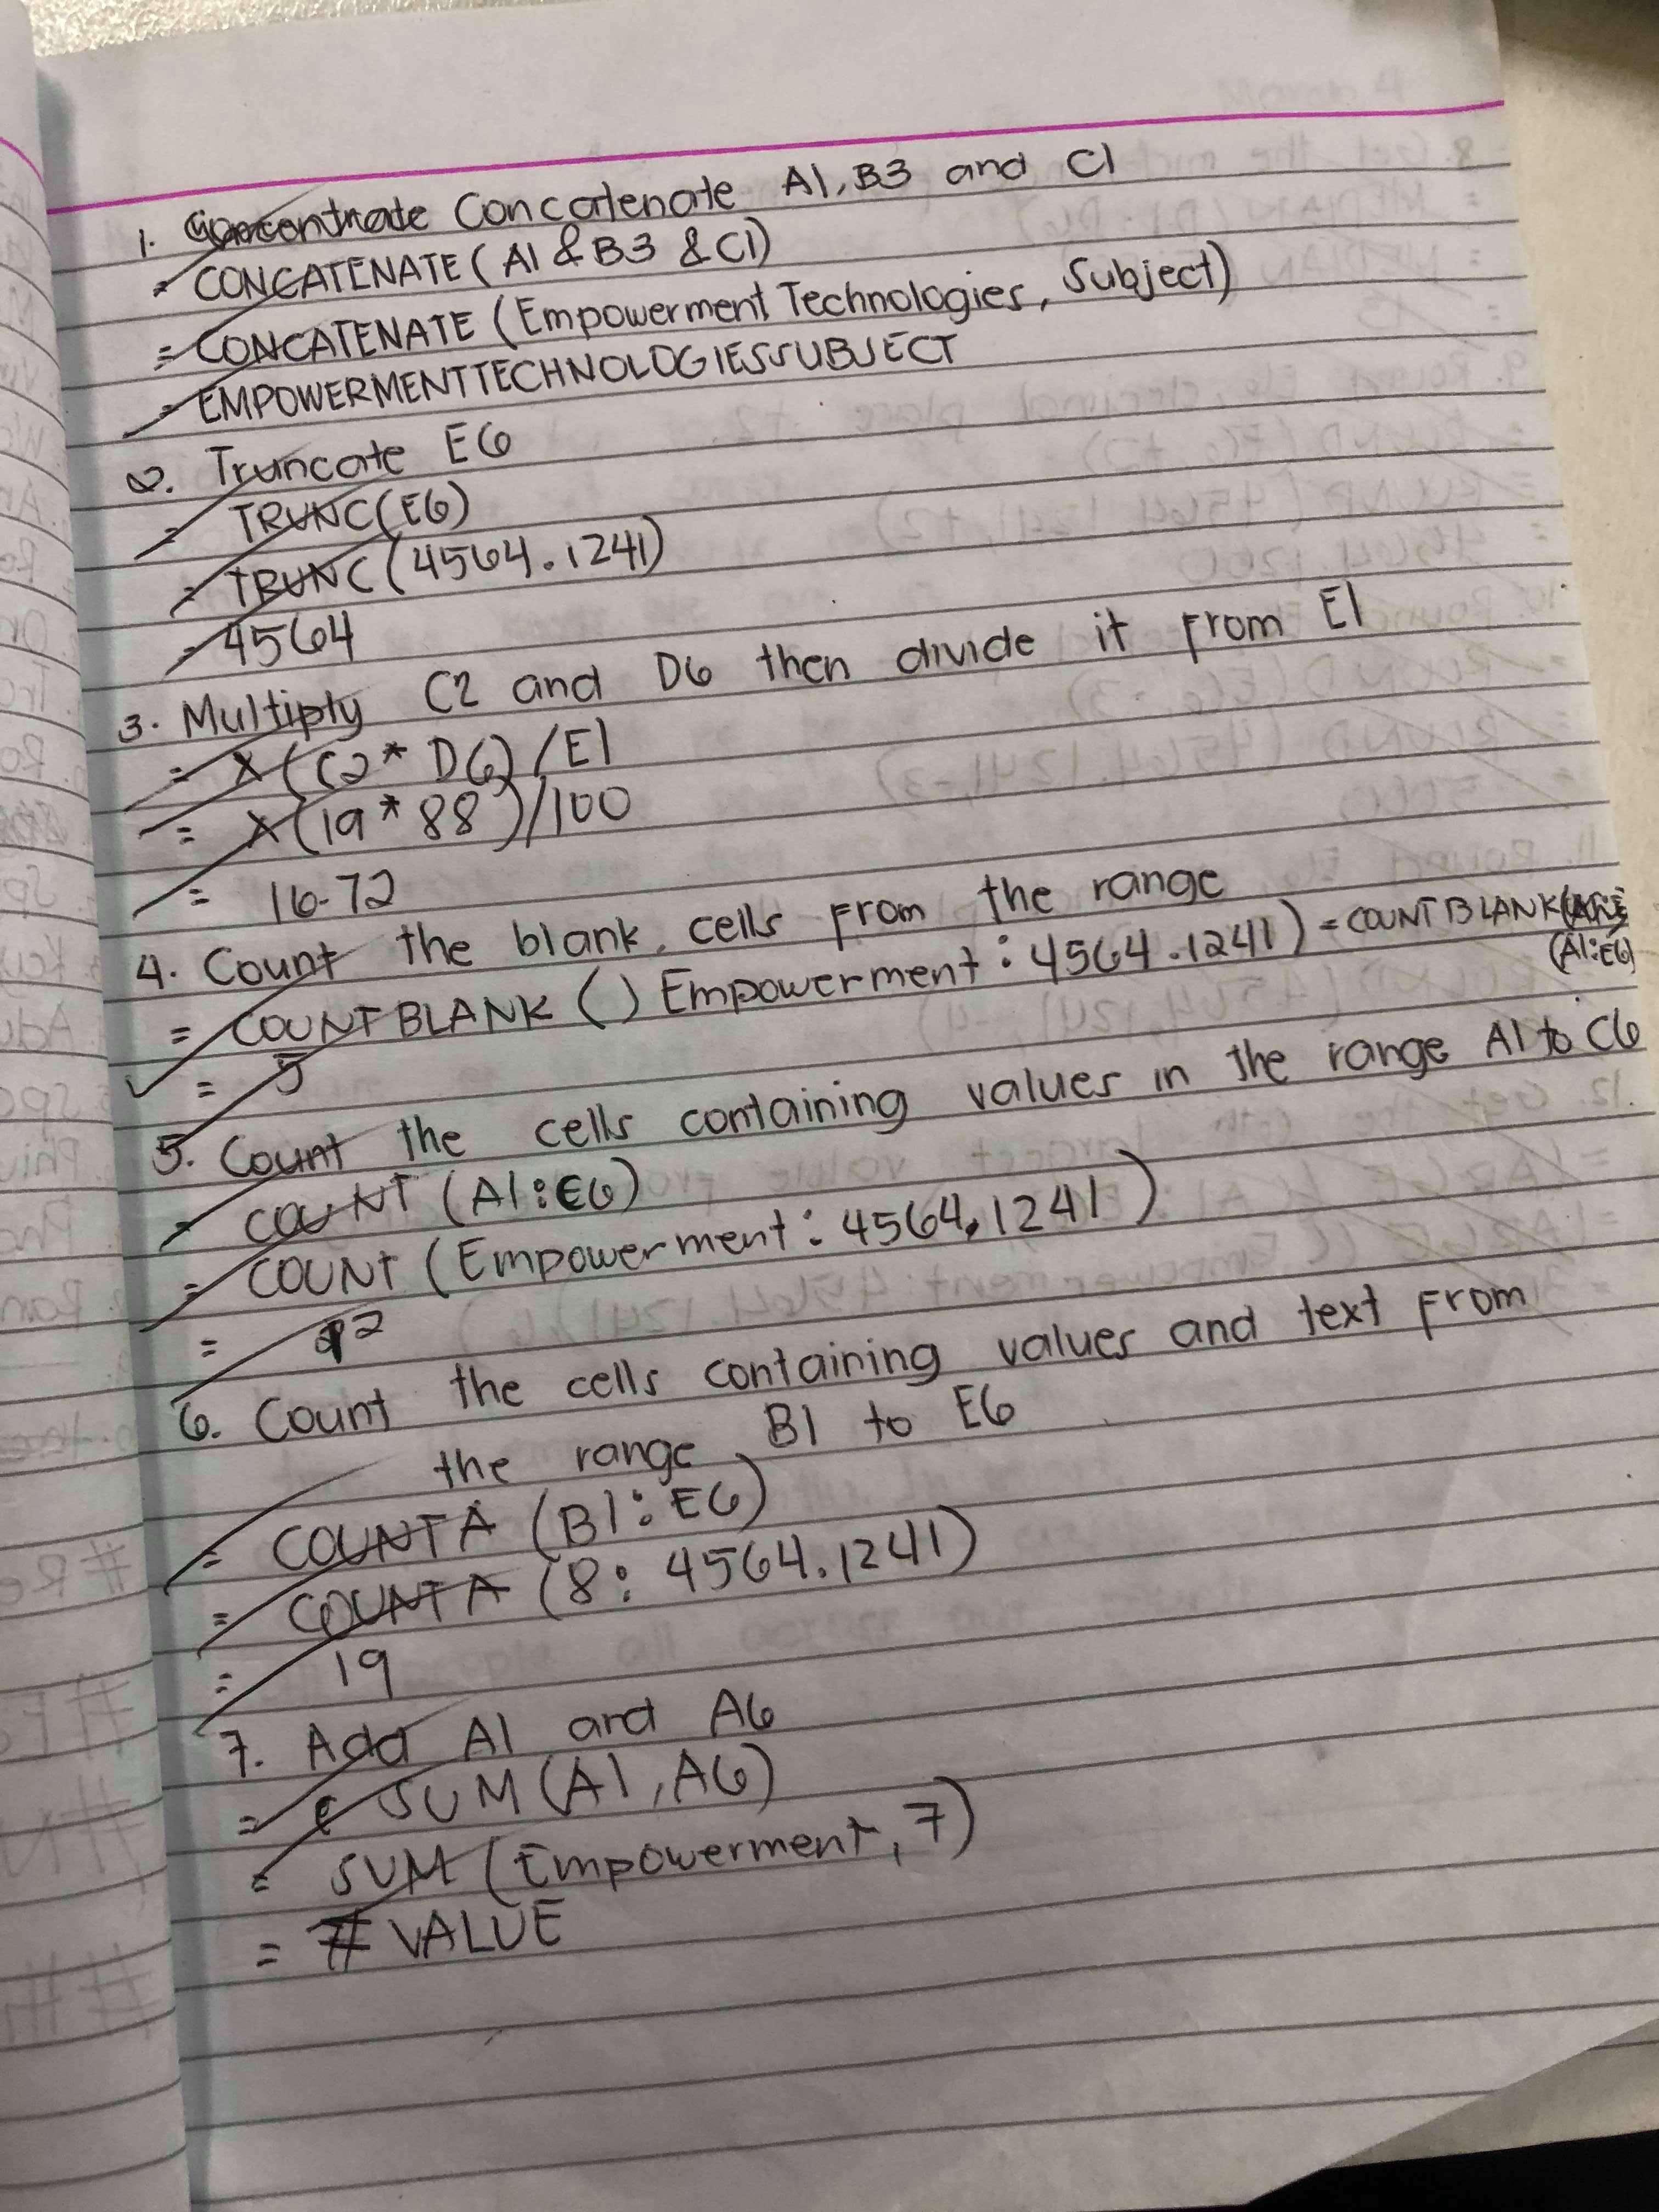 1. Concentrate Concatenate A1, B3 and C1
= CONCATENATE (A1 & B3 & C1)
= CONCATENATE (Empowerment Technologies, Subject)
= EMPOWERMENTTECHNOLOGIESSUBJECT
2. Truncate E6
= TRUNC(E6)
= TRUNC(4564.1241)
= 4564
3. Multiply C2 and D6 then divide it from E1
= X(C2* D6)/E1
= X(19*88)/100
= 16.72
4. Count the blank cells from the range
= COUNTBLANK () Empowerment : 4564.1241) = COUNTBLANK
(A1:E6)
= 5
5. Count the cells containing values in the range A1 to C6
= COUNT (A1:E6)
= COUNT (Empowerment : 4564.1241)
= 12
6. Count the cells containing values and text from
the range B1 to E6
= COUNTA (B1:E6)
= COUNTA (8: 4564.1241)
= 19
7. Add A1 and A6
= SUM (A1, A6)
= SUM (Empowerment, 7)
= # VALUE